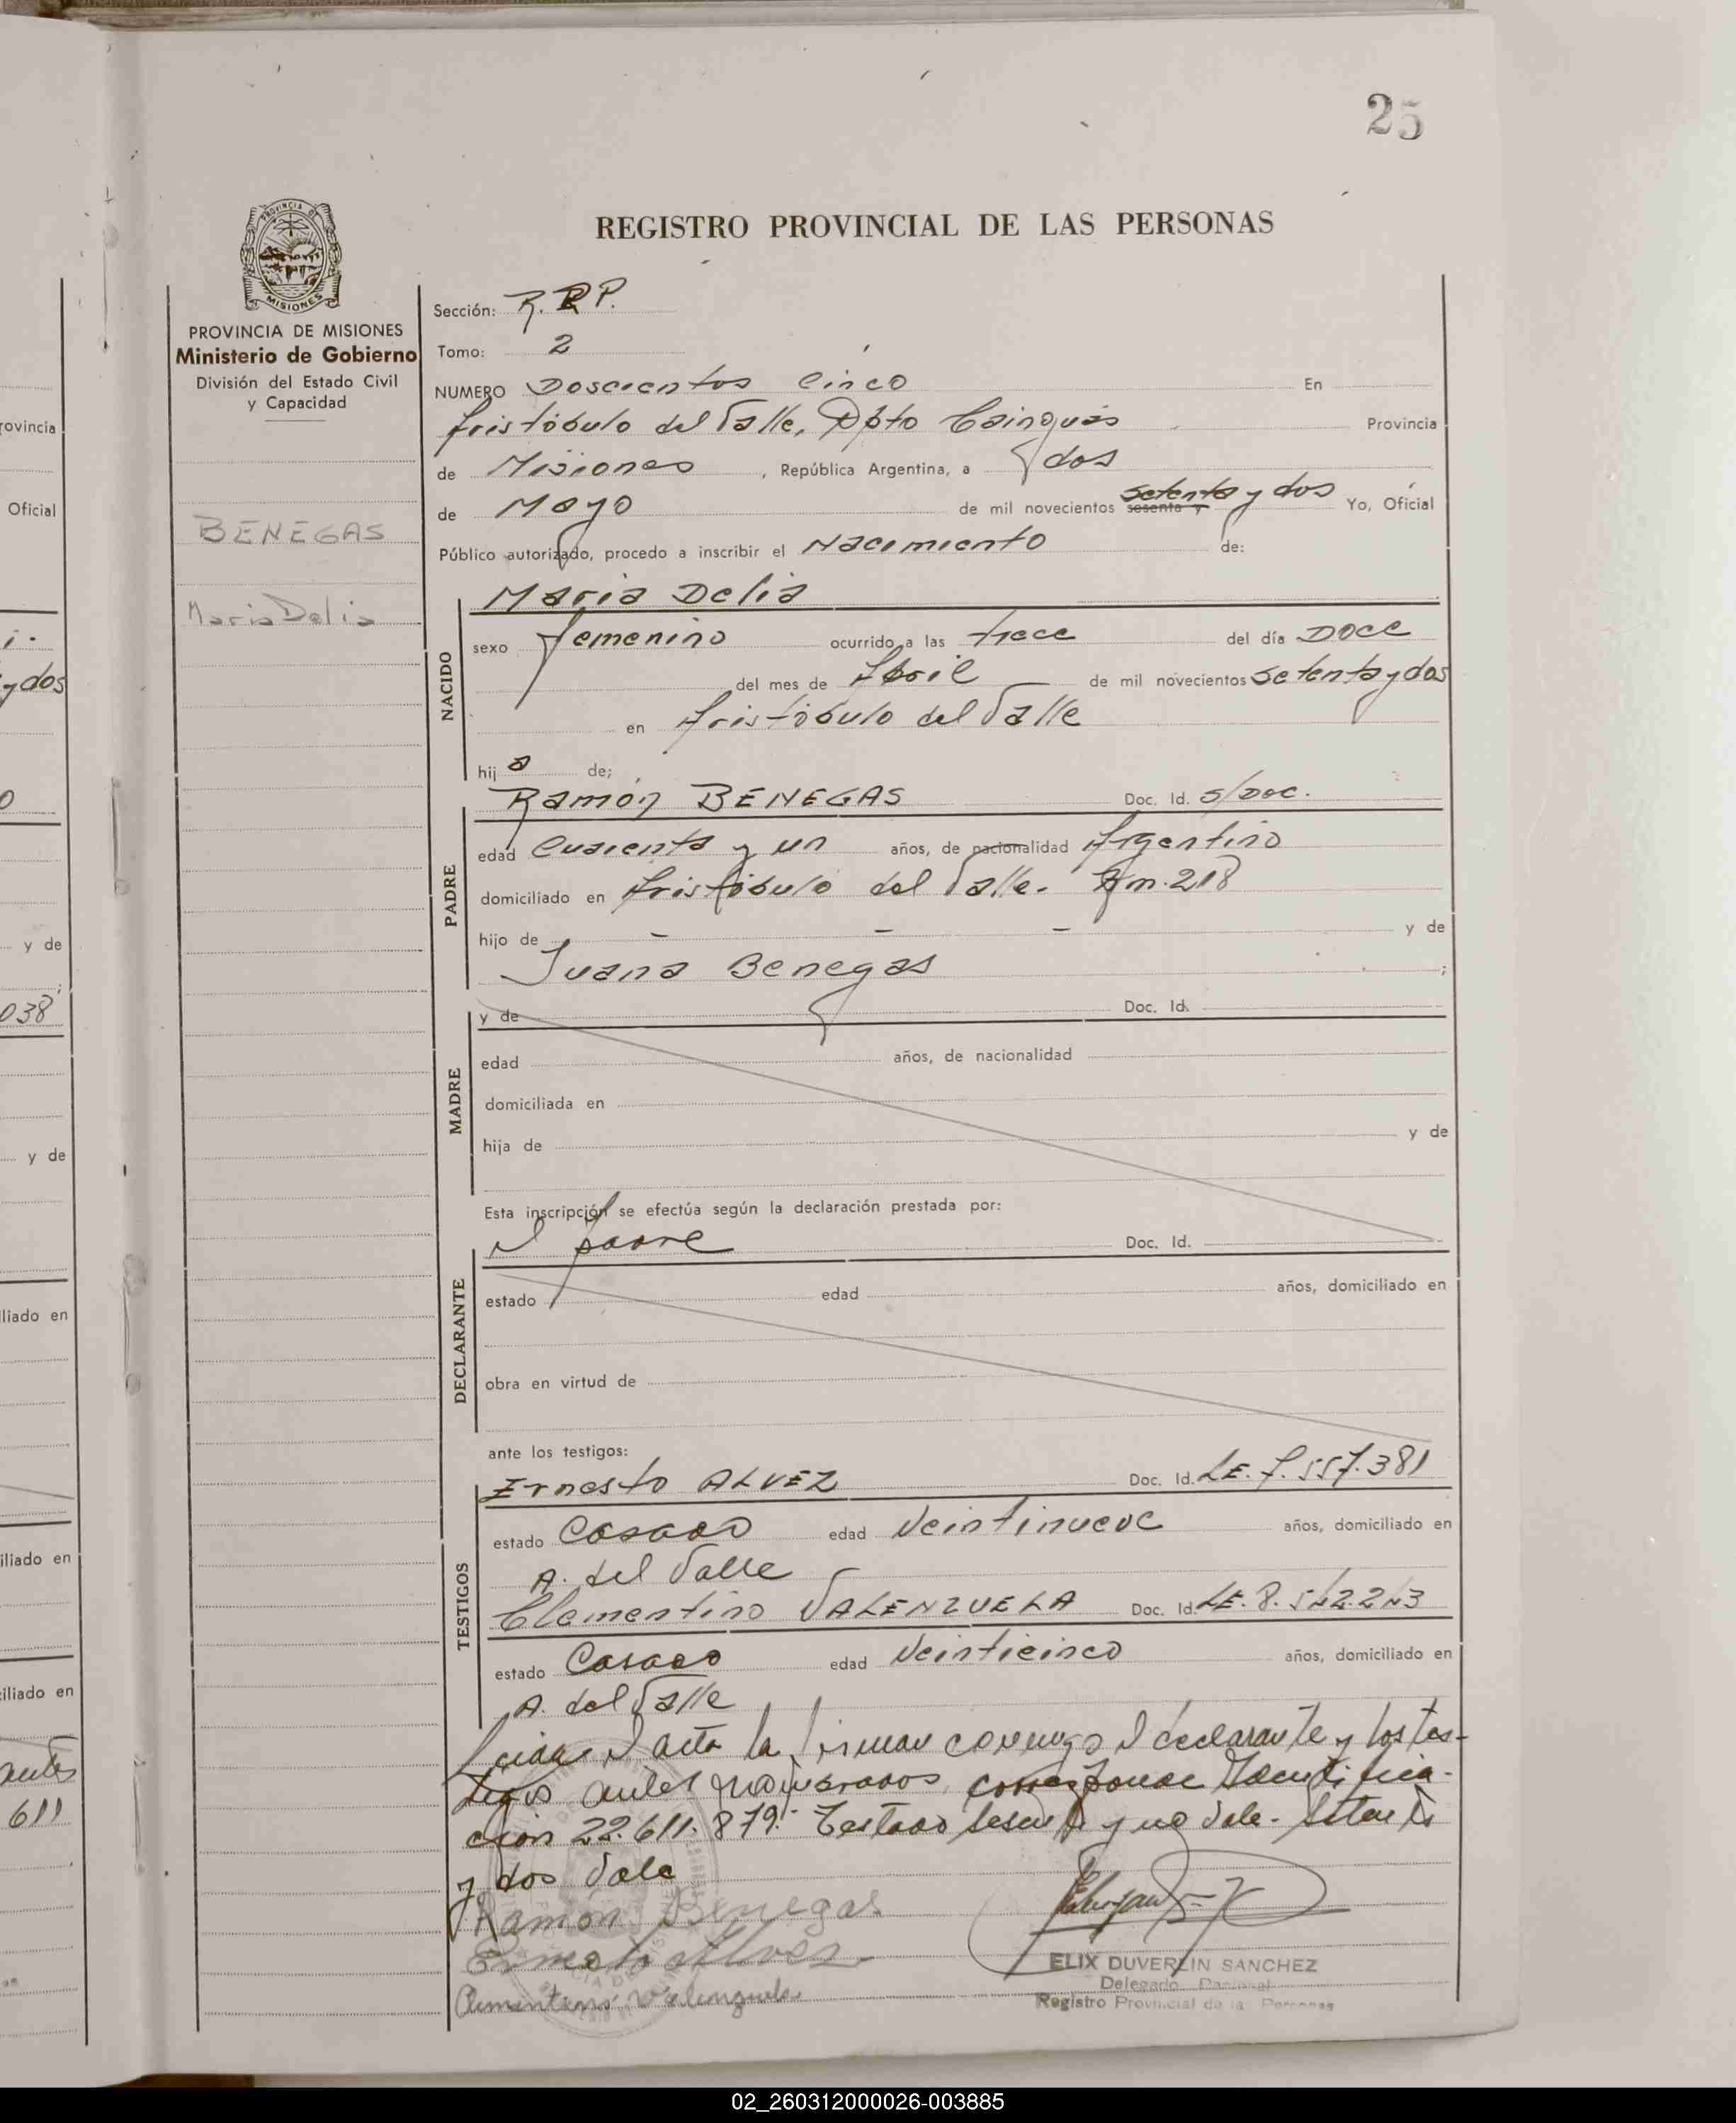 25
REGISTRO PROVINCIAL DE LAS PERSONAS
PROVINCIA DE MISIONES
Ministerio de Gobierno
División del Estado Civil
y Capacidad
BENEGAS
Maria Delia
Sección: R.R.P.
Tomo: 2
NUMERO Doscientos Cinco En
Aristóbulo del Valle, Dpto Cainguás Provincia
de Misiones, República Argentina, a dos
de Mayo de mil novecientos sesenta y setenta y dos Yo, Oficial
Público autorizado, procedo a inscribir el Nacimiento de:
NACIDO
Maria Delia
sexo femenino ocurrido a las trece del día Doce
del mes de Abril de mil novecientos setenta y dos
en Aristóbulo del Valle
hij a de;
PADRE
Ramón BENEGAS Doc. Id. s/Doc.
edad Cuarenta y un años, de nacionalidad Argentino
domiciliado en Aristóbulo del Valle. Km. 218
hijo de - - - y de
Juana Benegas ;
MADRE
y de Doc. Id.
edad años, de nacionalidad
domiciliada en
hija de y de
Esta inscripción se efectúa según la declaración prestada por:
DECLARANTE
el padre Doc. Id.
estado edad años, domiciliado en
obra en virtud de
ante los testigos:
TESTIGOS
Ernesto ALVEZ Doc. Id. LE. 7.557.381
estado Casado edad Veintinueve años, domiciliado en
A. del Valle
Clementino VALENZUELA Doc. Id. LE. 8.542.243
estado Casado edad Veinticinco años, domiciliado en
A. del Valle
Leida el acta la firman conmigo el declarante y los tes-
tigos antes nombrados, corresponde Identifica-
ción 22.611.879.- Testado sesenta y no vale. Setenta
y dos Vale
Ramón Benegas
Ernesto Alvez
Clementino Valenzuela
ELIX DUVERLIN SANCHEZ
Delegado
Registro Provincial de las Personas
ovincia
Oficial
y dos
y de
038
y de
liado en
iliado en
iliado en
antes
611
02_260312000026-003885